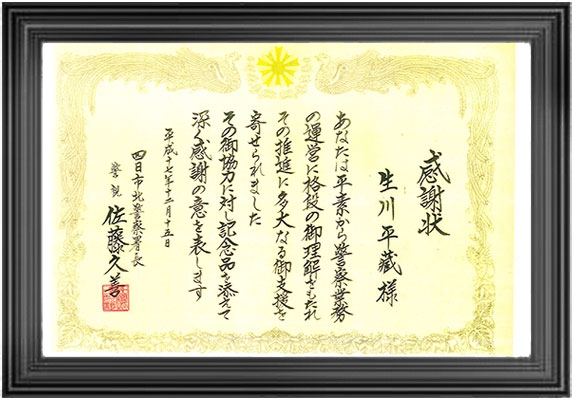 感謝状
生川平藏様
あなたは平素から警察業務
の運営に格段の御理解をもたれ
その推進に多大なる御支援を
寄せられました
その御協力に対し記念品を添えて
深く感謝の意を表します
平成十七年十二月十五日
四日市北警察署長
警視 佐藤久善